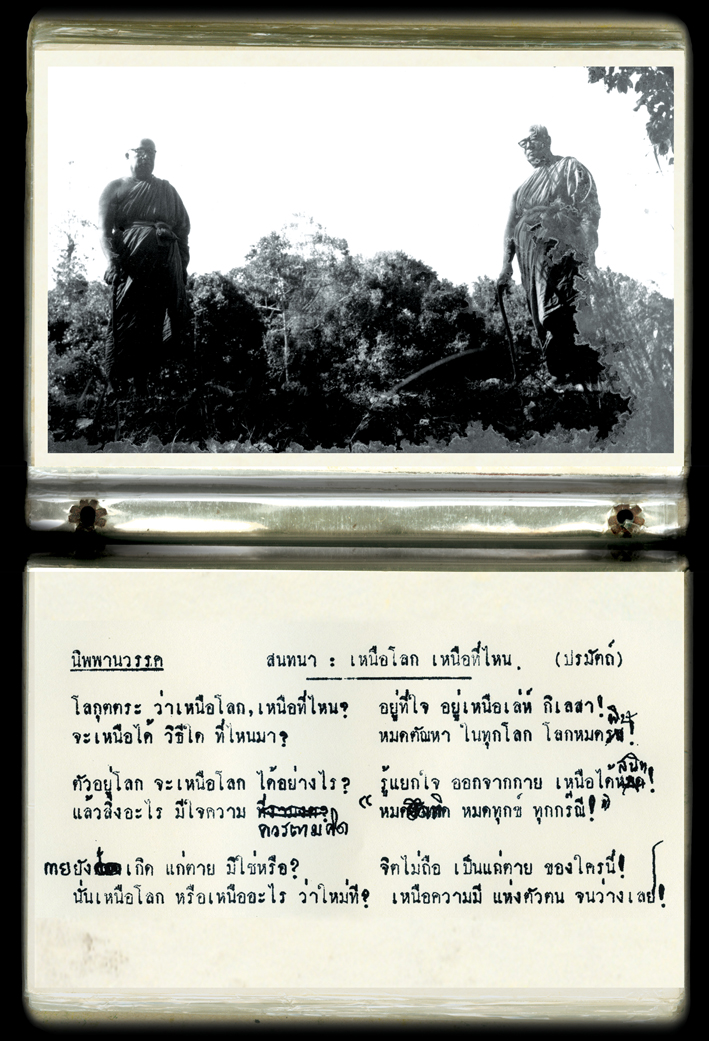 นิพพานวรรค สนทนา : เหนือโลก เหนือที่ไหน. (ปรมัตถ์)
โลกุตตระ ว่าเหนือโลก, เหนือที่ไหน? อยู่ที่ใจ อยู่เหนือเล่ห์ กิเลสา!
จะเหนือได้ วิธีใด ที่ไหนมา? หมดตัณหา ในทุกโลก โลกหมดพิษ!
ตัวอยู่โลก จะเหนือโลก ได้อย่างไร? รู้แยกใจ ออกจากกาย เหนือได้สนิท!
แล้วสิ่งอะไร มีใจความ ควรตามคิด หมด หมดทุกข์ ทุกกรณี!
กายยัง เกิด แก่ตาย มิใช่หรือ? จิตไม่ถือ เป็นแก่ตาย ของใครนี้!
นั่นเหนือโลก หรือเหนืออะไร ว่าใหม่ที? เหนือความมี แห่งตัวตน จนว่างเลย!